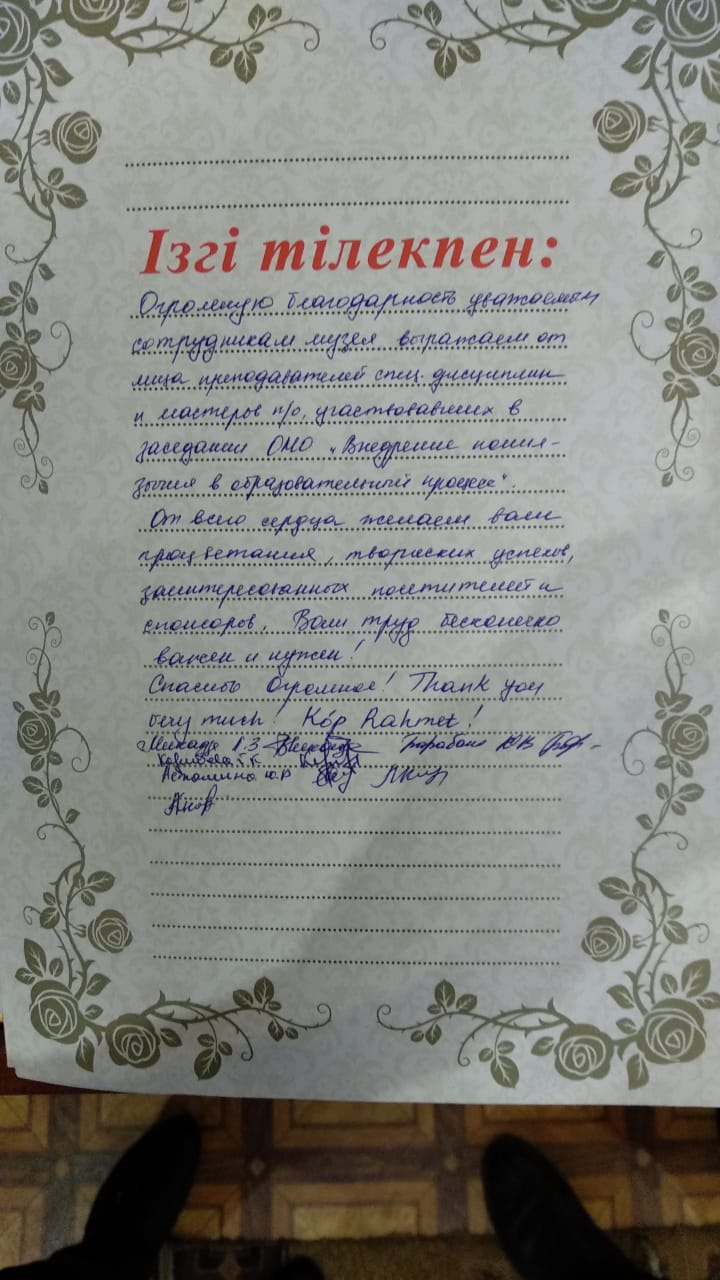 Ізгі тілекпен:
Огромную благодарность уважаемым
сотрудникам музея выражаем от
лица преподавателей спец. дисциплин
и мастеров п/о, участвовавших в
заседании ОМО "Внедрение полия-
зычия в образовательный процесс".
От всего сердца желаем вам
процветания, творческих успехов,
заинтересованных посетителей и
спонсоров. Ваш труд бесконечно
важен и нужен!
Спасибо Огромное! Thank you
very much! Kóp Rahmet!